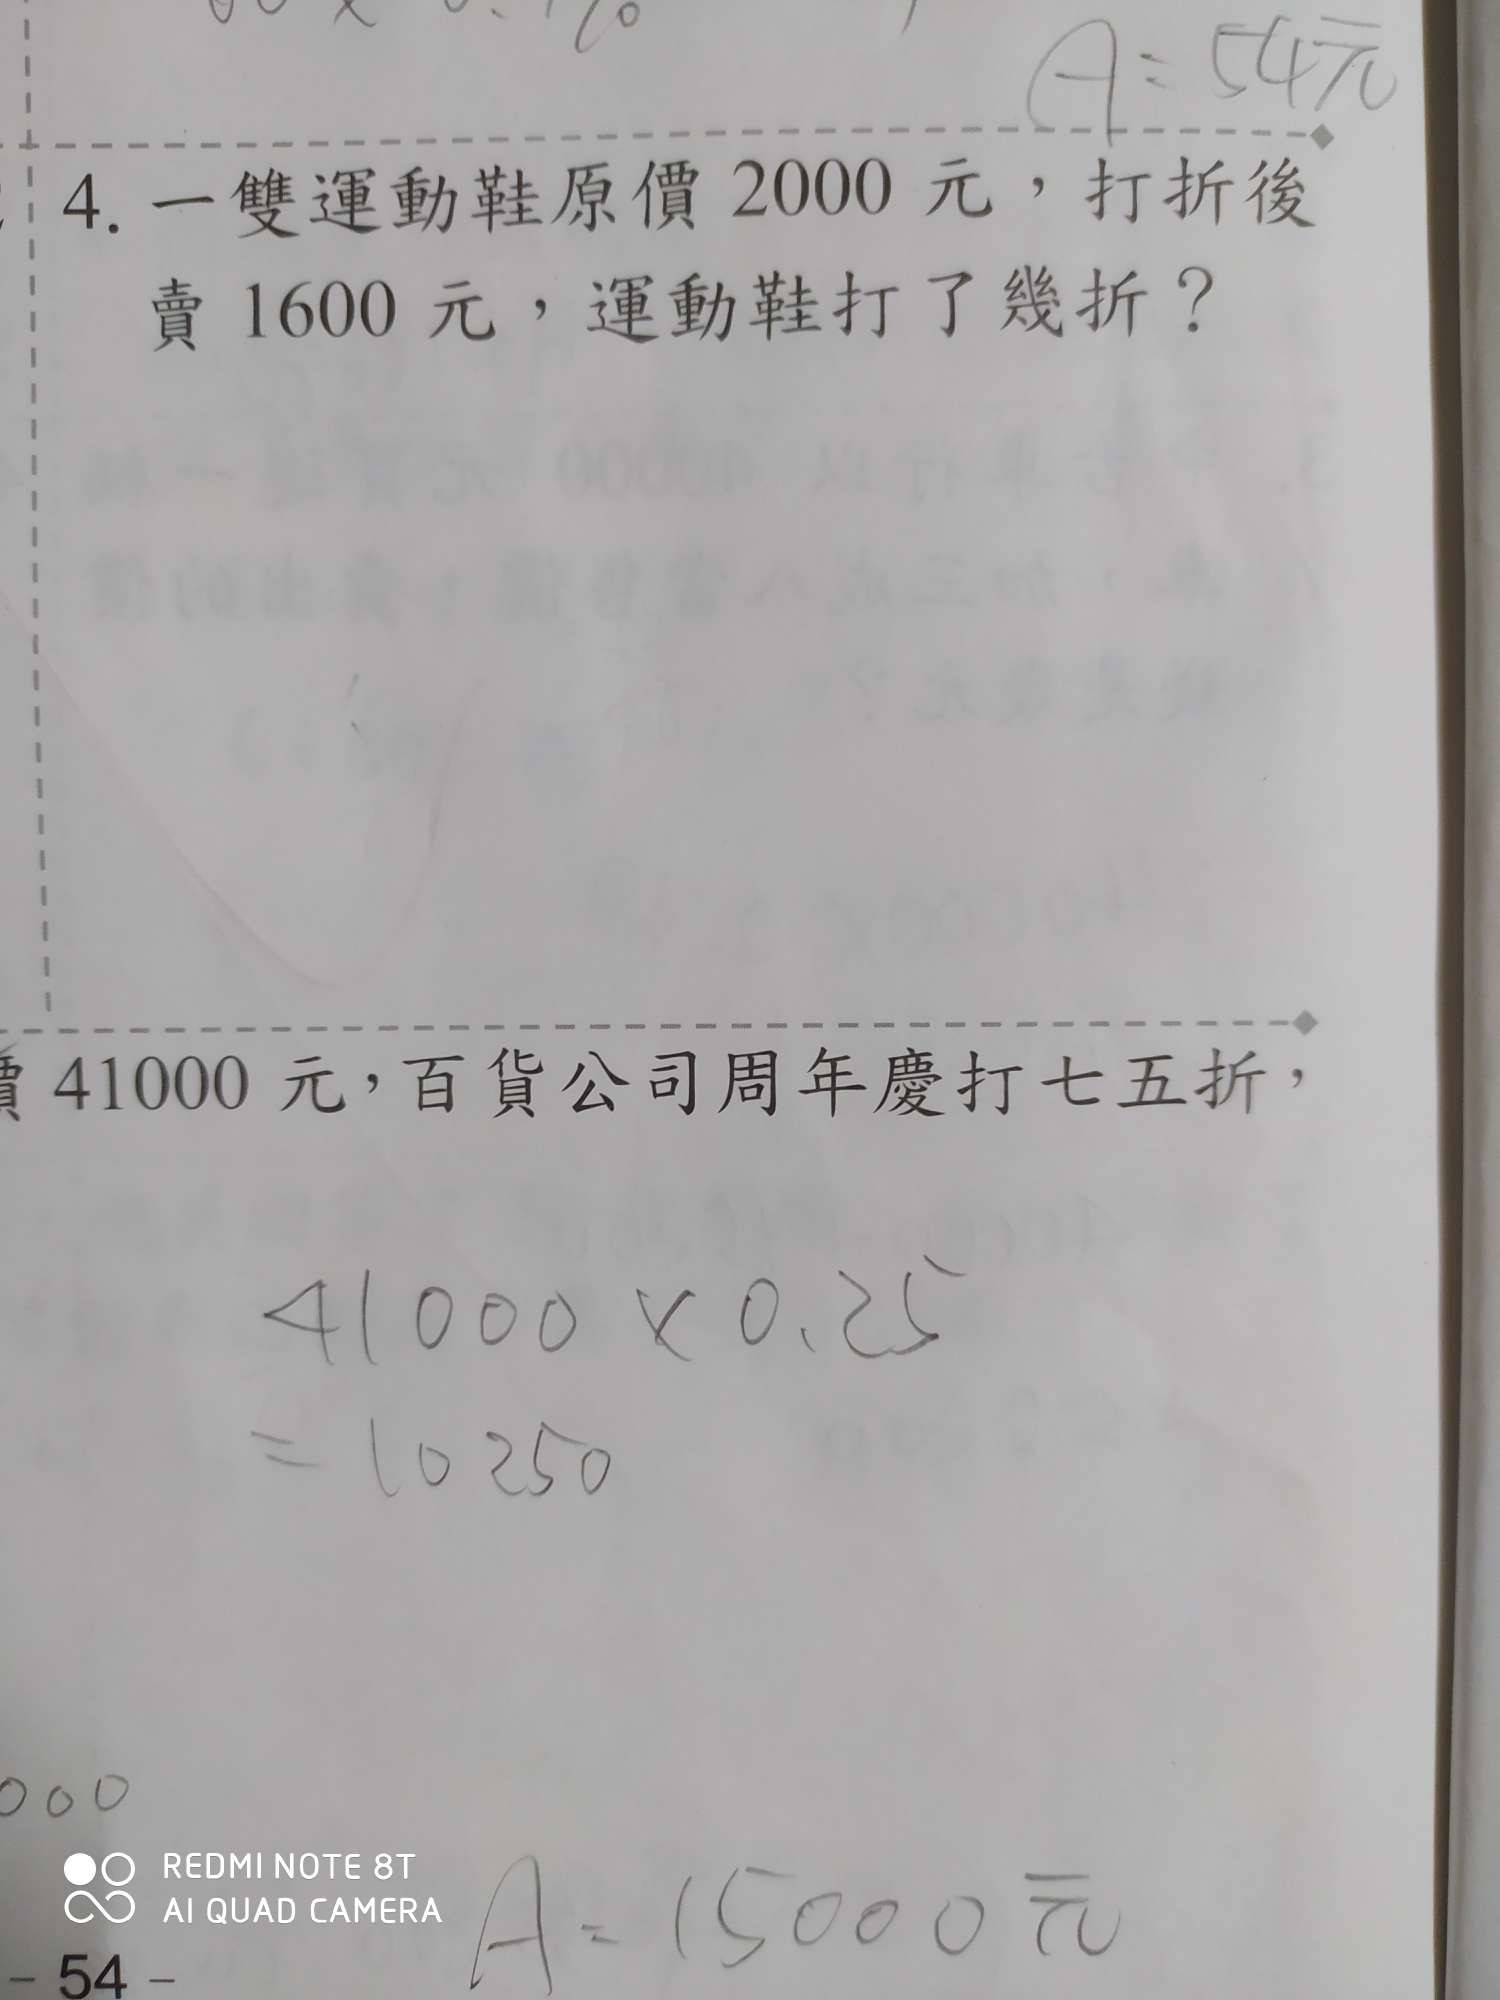 A=54元
4. 一雙運動鞋原價 2000 元，打折後
賣 1600 元，運動鞋打了幾折？
價 41000 元，百貨公司周年慶打七五折，
41000 × 0.25
= 10250
000
REDMI NOTE 8T
AI QUAD CAMERA
A=15000元
- 54 -